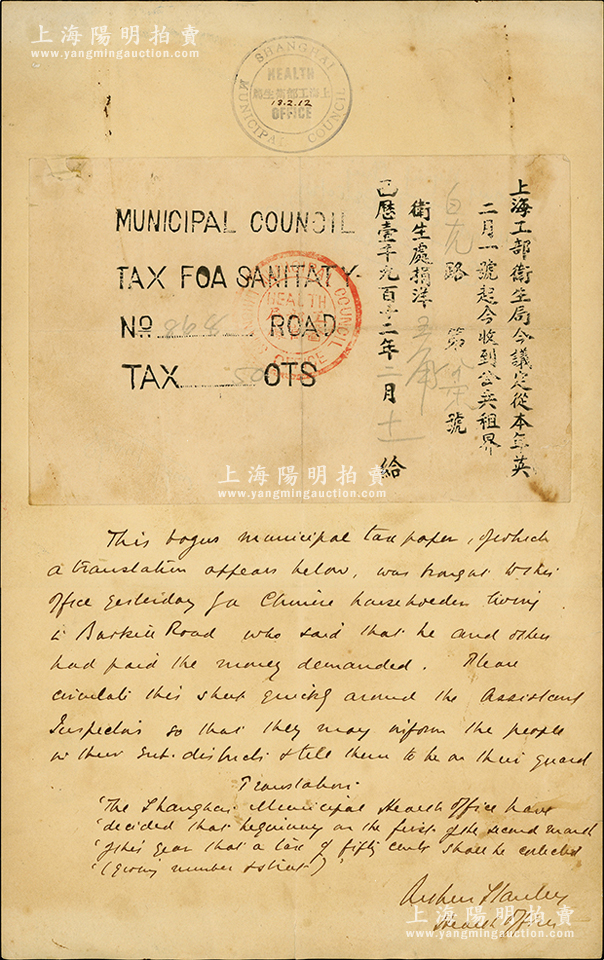 上海陽明拍賣
www.yangmingauction.com
SHANGHAI MUNICIPAL COUNCIL
HEALTH
上海工部局衛生處
18.2.12
OFFICE
MUNICIPAL COUNCIL
TAX FOA SANITATY
No 868 ROAD
TAX 50 OTS
COUNCIL
HEALTH
OFFICE
上海工部衛生局今議定從本年英
二月一號起今收到英租界
白克路 第 號
衛生處捐洋五角
己歷壹千九百十二年二月十一 給
上海陽明拍賣
www.yangmingauction.com
This bogus municipal tax paper, of which
a translation appears below, was brought to this
office yesterday by a Chinese householder living
in Road who said that he and others
had paid the money demanded. Please
circulate this sheet quickly around the Assistant
Inspectors so that they may inform the people
in their Sub-districts & tell them to be on their guard
Translation.
"The Shanghai Municipal Health Office have
"decided that beginning on the first of the second month
"of this year that a tax of fifty cents shall be collected
"(giving number & street)"
Arthur Stanley
Health Officer
上海陽明拍賣
www.yangmingauction.com